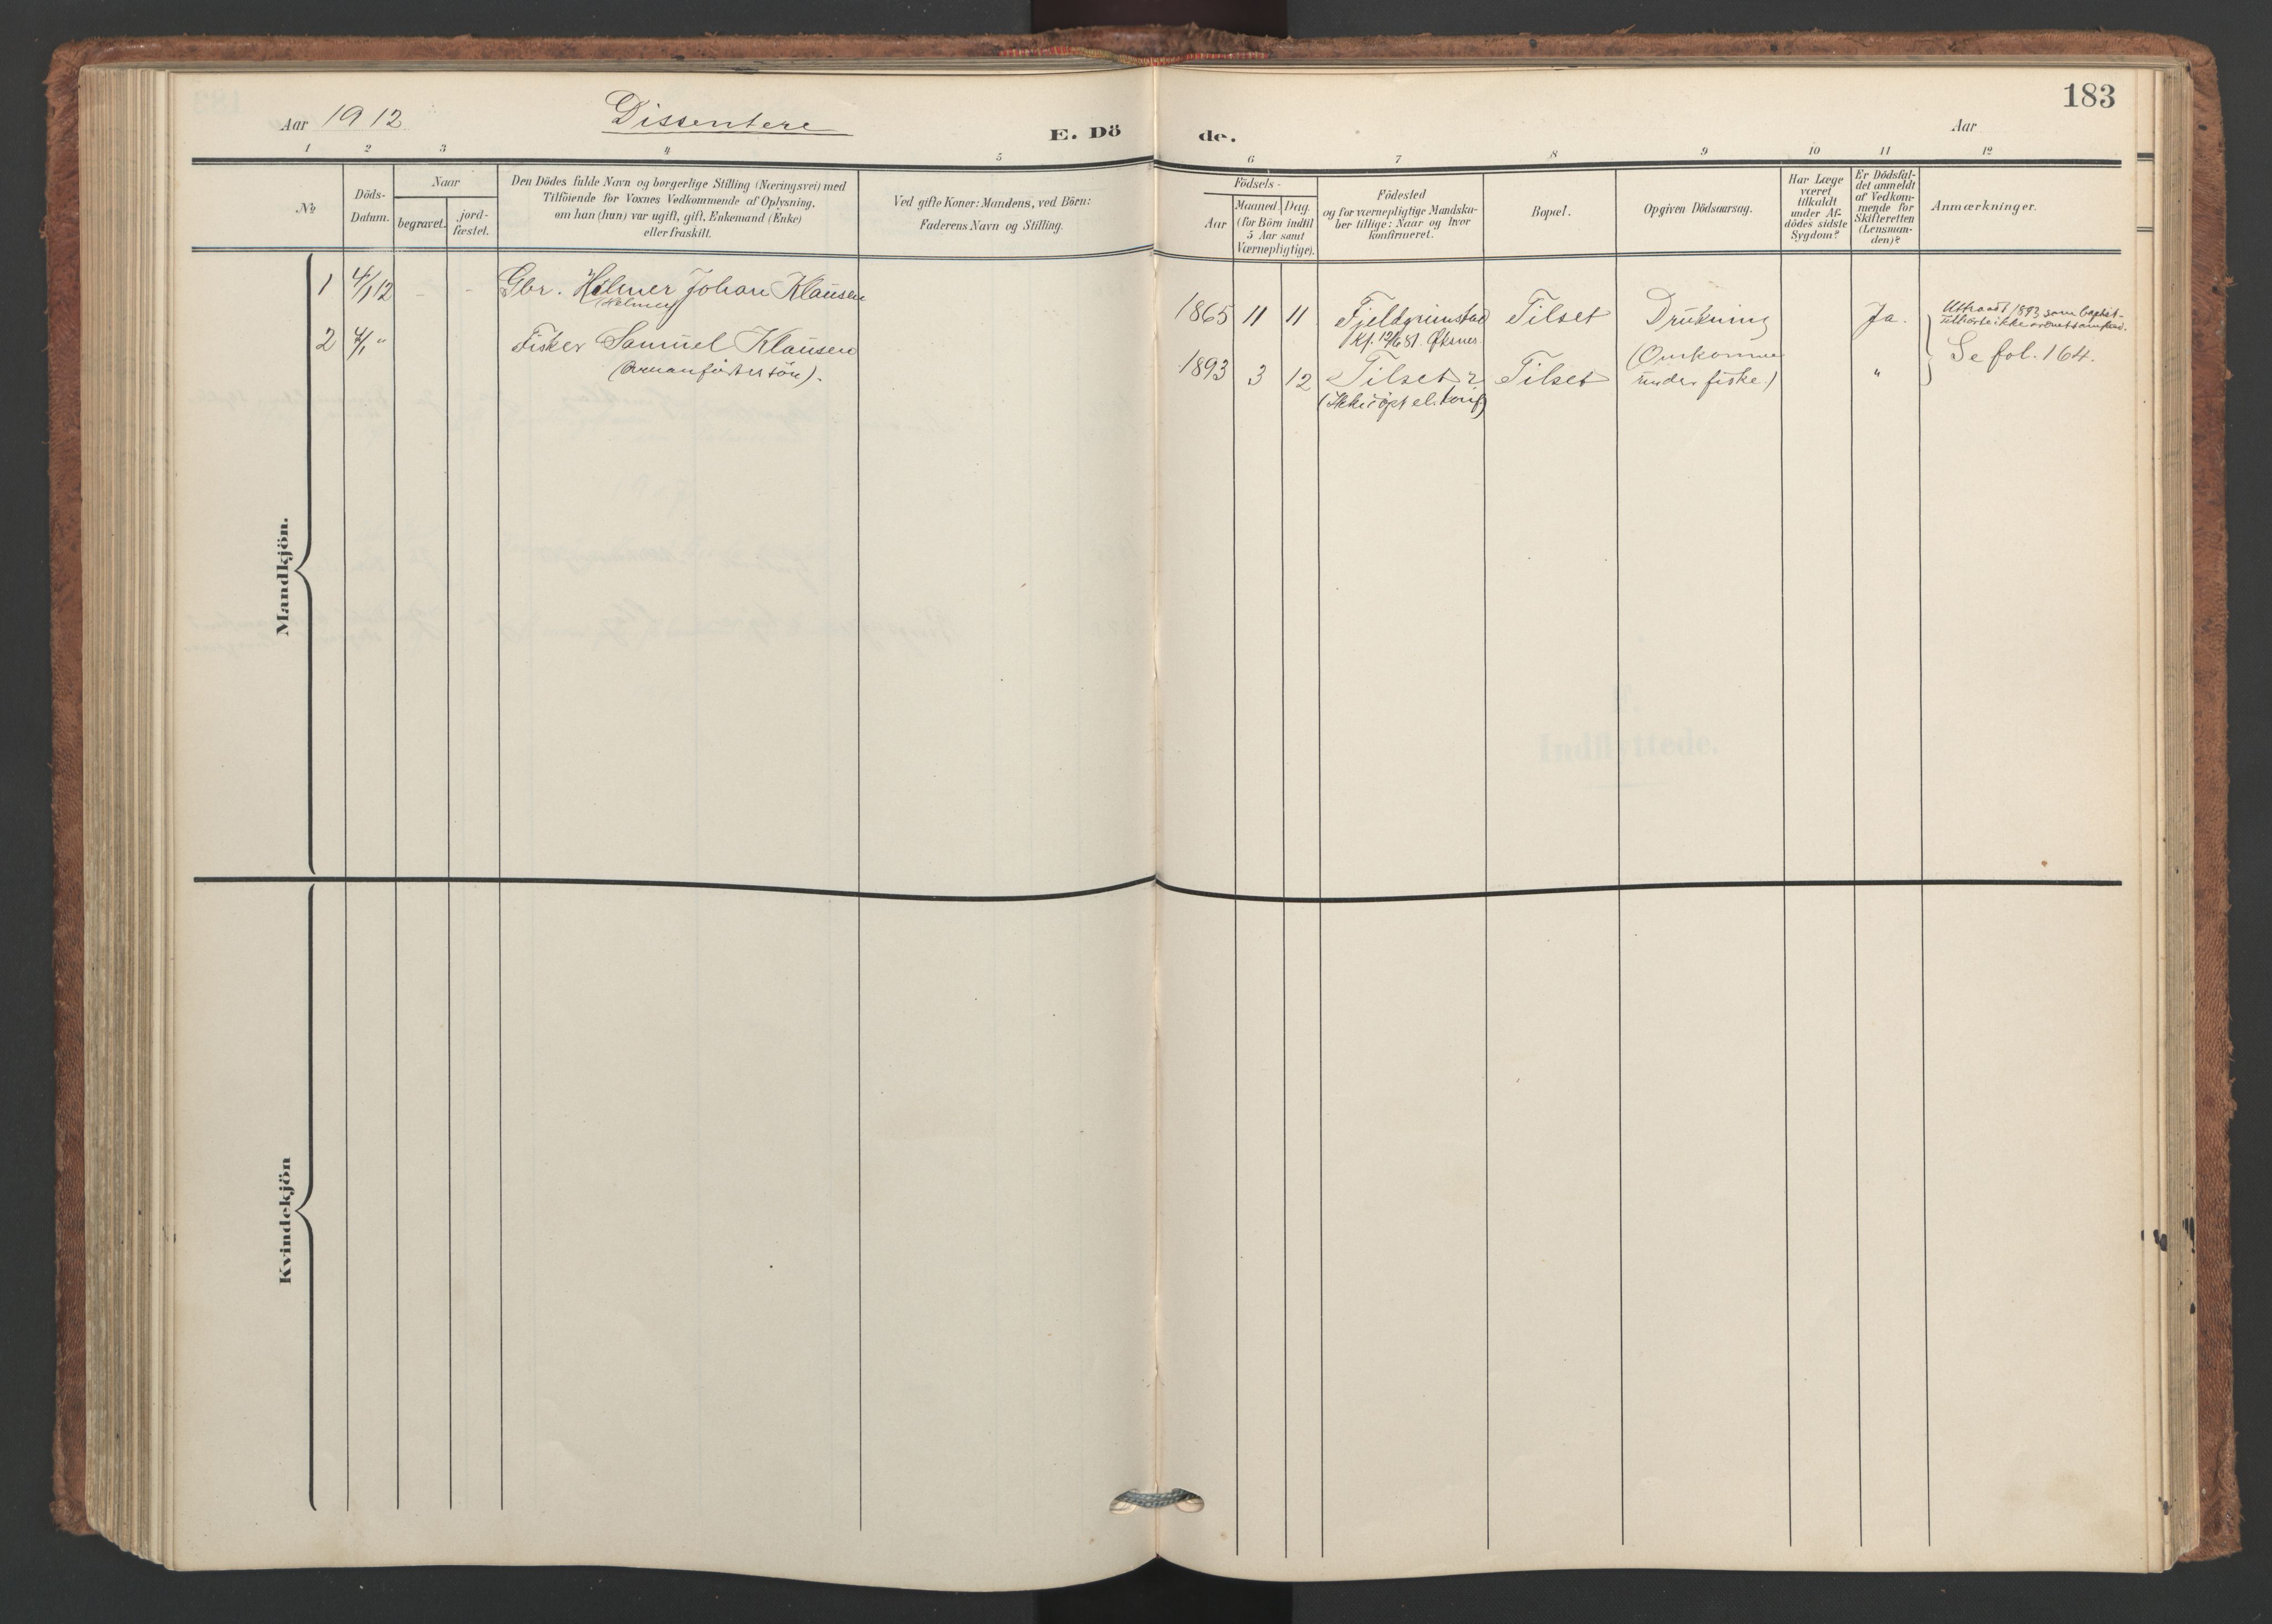 183
Aar 1912
Dissentere
E. Döde.
Aar
1 2 3 4 5 6 7 8 9 10 11 12
№
Döds-
Datum.
Naar
begravet.
jord-
fæstet.
Den Dödes fulde Navn og borgerlige Stilling (Næringsvei) med
Tilföiende for Voxnes Vedkommende af Oplysning,
om han (hun) var ugift, gift, Enkemand (Enke)
eller fraskilt.
Ved gifte Koner: Mandens, ved Börn:
Faderens Navn og Stilling.
Födsels-
Aar
Maaned. Dag.
(for Börn indtil
5 Aar samt
Værnepligtige).
Födested
og for værnepligtige Mandska-
ber tillige: Naar og hvor
konfirmeret.
Bopæl.
Opgiven Dödsaarsag.
Har Læge
været
tilkaldt
under Af-
dödes sidste
Sygdom?
Er Dödsfal-
det anmeldt
af Vedkom-
mende for
Skifteretten
(Lensman-
den)?
Anmærkninger.
Mandkjön.
1 4/1 12 - - Gbr. Hilmer Johan Klausen
(Helmer)
1865 11 11 Fjeldgrimstad Tilset Drukning Ja.
Kf. 12/6 81. Øksnes
Utraadt 1893 som baptist-
tilhørte ikke
2 4/1 " Fisker Samuel Klausen
fostersön).
1893 3 12 Tilset? Tilset (Omkomne
under fiske.) "
(Ikke døpt el. konf.)
Se fol. 164.
Kvindekjön
Indflyttede.